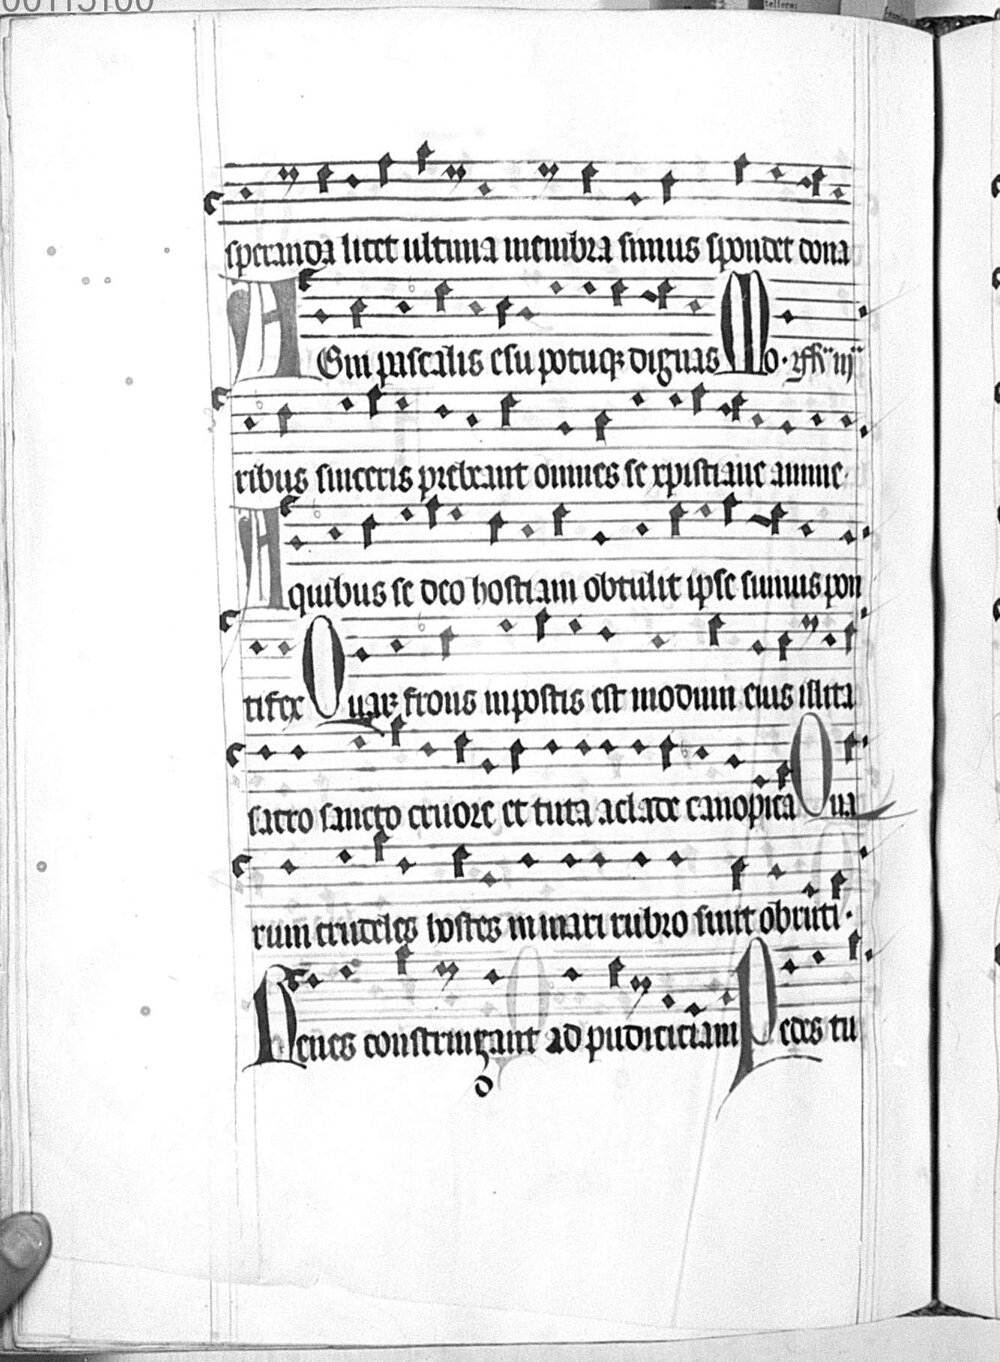 speranda licet ultima membra simus spondet dona
Agni pascalis esu potuq; dignas Mo
ribus sinceris prebeant omnes se xpistiane anime.
A quibus se deo hostiam obtulit ipse sumus pon
tifex Quar frons in postis est modum eius illita
sacro sancto cruore et tuta a clade canopica Qua
rum crudeles hostes in mari rubro sunt obruti.
Renes constringant ad pudiciciam Pedes tu